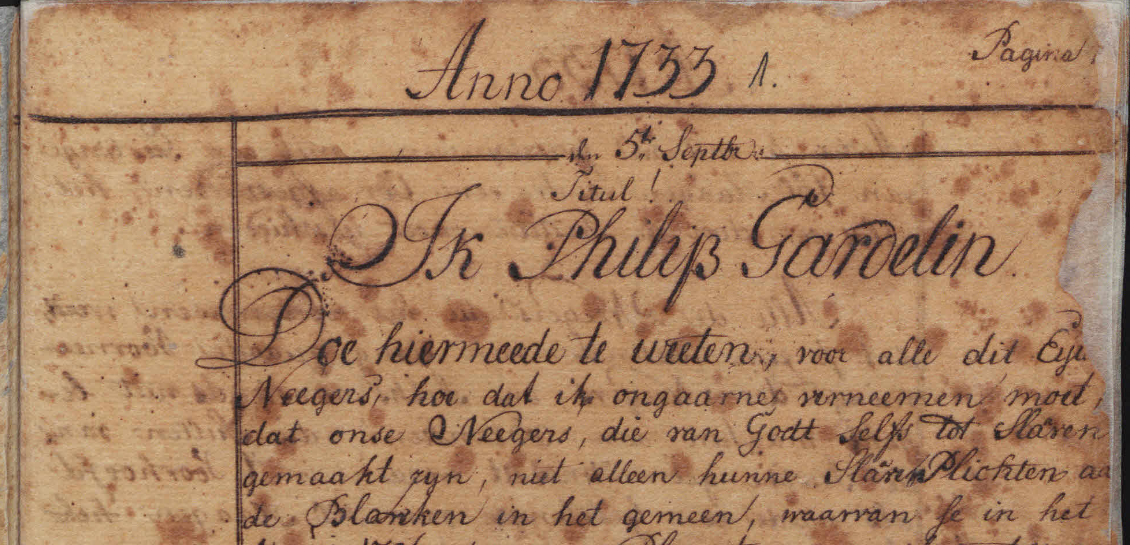 Pagina
Anno 1733 1.
den 5t. Septbr:
Titul!
Ik Philip Gardelin.
Doe hiermeede te weeten, voor alle dit
Neegers, hoe dat ik ongaarne verneemen moet,
dat onse Neegers, die van Godt selfs tot Slaven
gemaakt zyn, niet alleen hunne Slaven Plichten
de Blanken in het gemeen, waarvan se in het